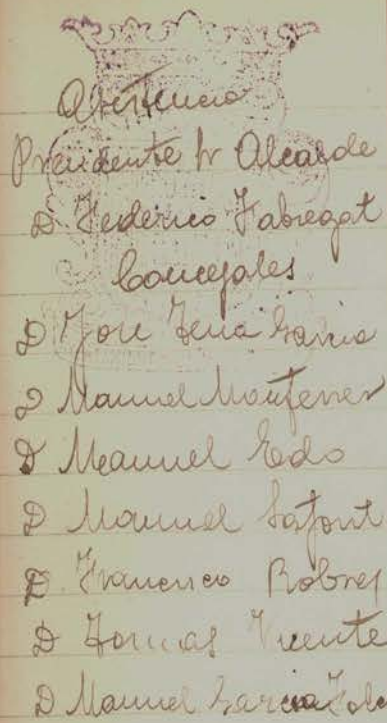 Asistencia
Presidente Sr Alcalde
D Federico Fabregat
Concejales
D Jose Tena Garcia
D Manuel Monferrer
D Manuel Edo
D Manuel Safont
D Francisco Robres
D Tomas Vicente
D Manuel Garcia